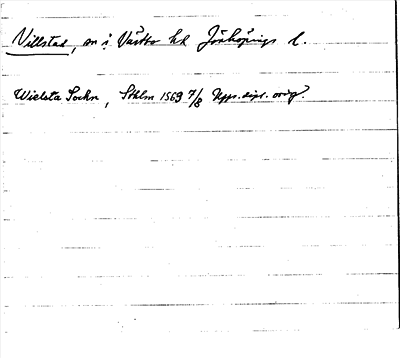 Villstad, sn i Västbo hd Jönköpings l.
Wielsta Sockn, Sthlm 1569 7/8 Upps. dipl. orig.